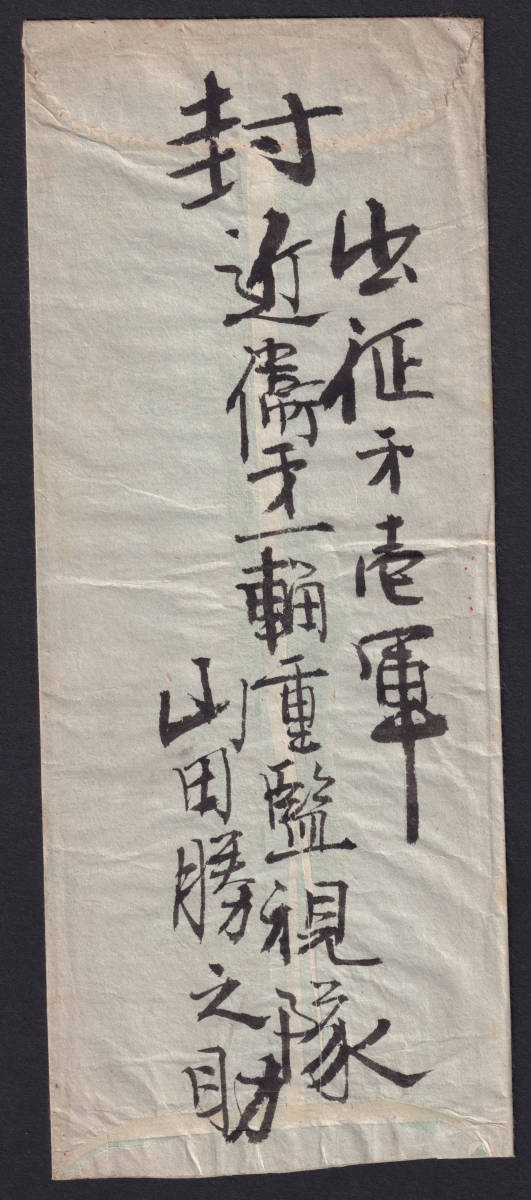 出征才壱軍
近衛才一輜重監視隊
山田勝之助
封